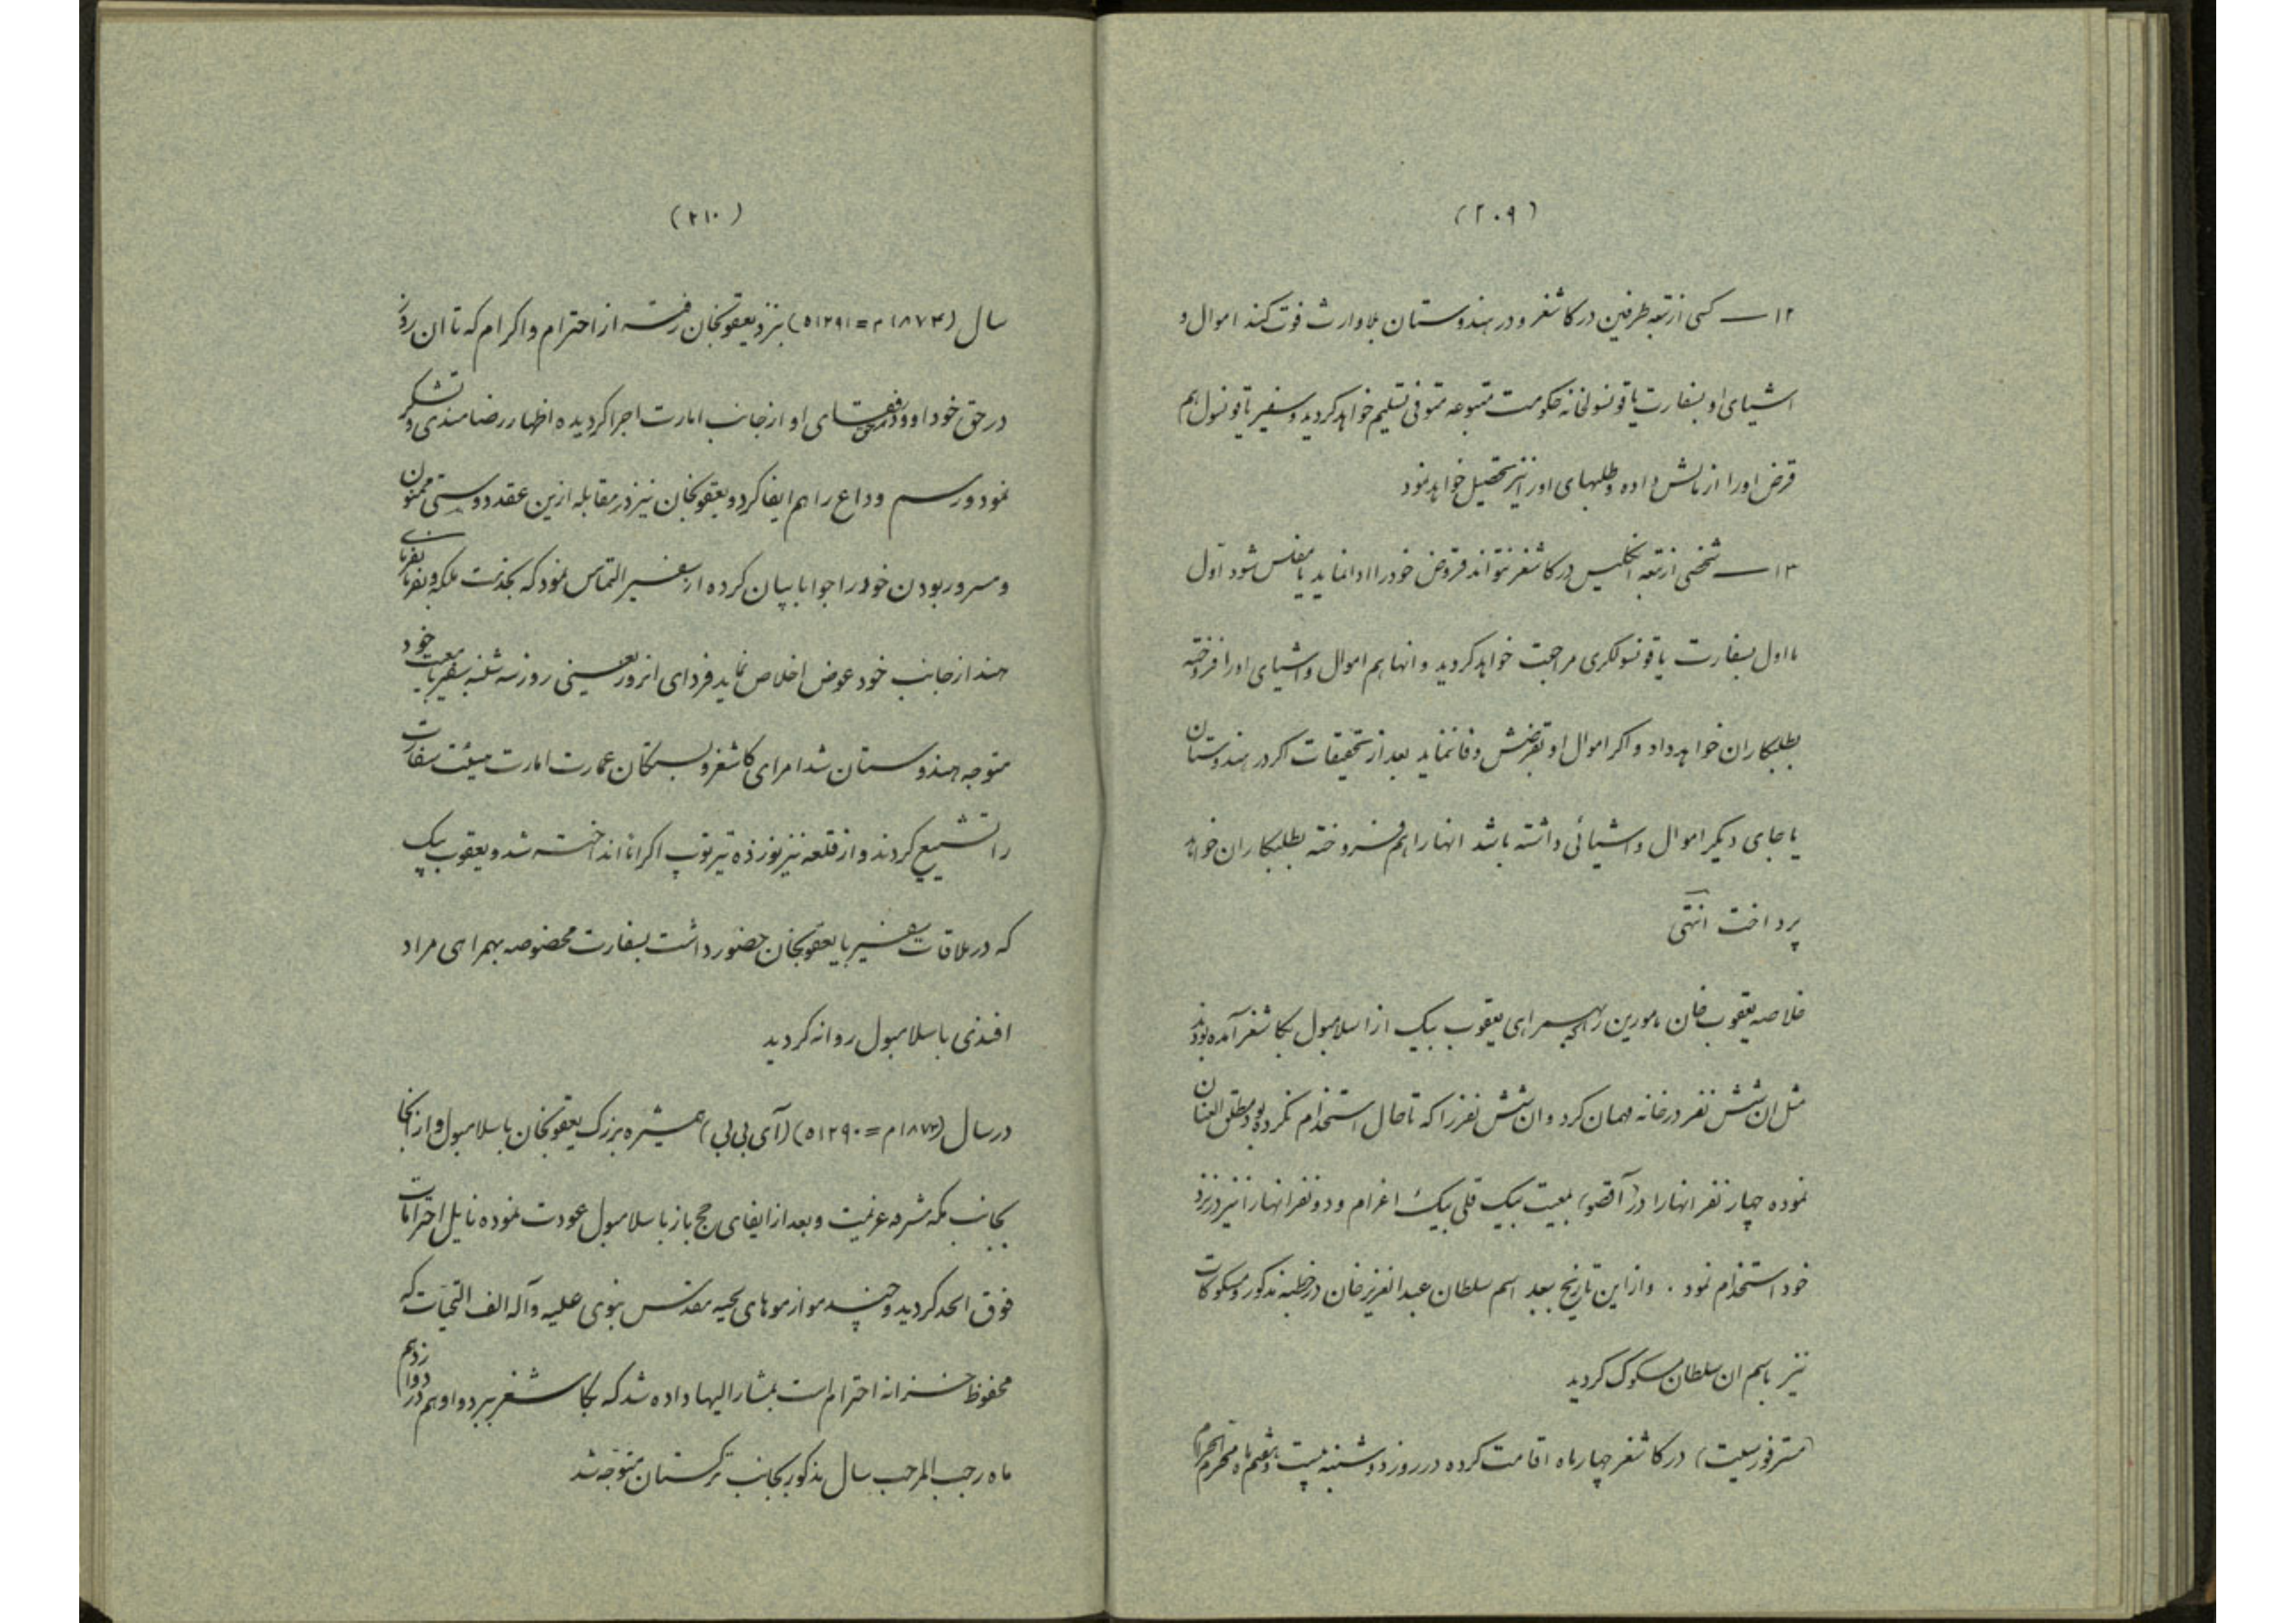 (۲۰۹)
۱۲ — کسی از تبعه طرفین در کاشغر و در هندوستان بلا وارث فوت کند اموال و
اشیای او بسفارت یا قونسولخانه حکومت متبوعه متوفی تسلیم خواهد کردید و سفیر یا قونسول هم
قرض او را از مالش داده و طلبهای او را نیز تحصیل خواهد نمود
۱۳ — شخصی از تبعه انکلیس در کاشغر نتواند قروض خود را ادا نماید یا مفلس شود اول
بسفارت یا قونسولکری مراجعت خواهد کردید و انها هم اموال و اشیای او را فروخته
بطلبکاران خواهد داد و اکر اموال او بقرضش وفا ننماید بعد از تحقیقات اکر در هندوستان
یا جای دیکر اموال و اشیائی داشته باشد انها را هم فروخته بطلبکاران خواهد
پرداخت انتهی
خلاصه یعقوب خان مامورین را که بهمراهی یعقوب بیک از اسلامبول بکاشغر آمده بودند
مثل ان شش نفر در خانه مهمان کرد و ان شش نفر را که تا حال استخدام نکرده بود مطلق العنان
نموده چهار نفر انها را در (آقصو) بمعیت بیک قلی بیک اعزام و دو نفر انها را نیز در نزد
خود استخدام نمود . و از این تاریخ ببعد اسم سلطان عبدالعزیز خان در خطبه مذکور و مسکوکات
نیز باسم ان سلطان مسکوک کردید
(مستر فورسیت) در کاشغر چهار ماه اقامت کرده در روز دوشنبه بیست و هفتم ماه محرم الحرام
(۲۱۰)
سال (۱۸۷۴م = ۱۲۹۱ه) بنزد یعقوبخان رفته از احترام و اکرام که تا ان روز
در حق خود او و رفقای او از جانب امارت اجرا کردیده اظهار رضامندی و تشکر
نمود و رسم وداع را هم ایفا کرد و یعقوبخان نیز در مقابله ازین عقد دوستی ممنون
و مسرور بودن خود را جوابا بیان کرده از سفیر التماس نمود که بخدمت ملکه و بفرمانفرمای
هند از جانب خود عوض اخلاص نماید فردای انروز یعنی روز سه شنبه سفیر با معیت خود
متوجه هندوستان شد امرای کاشغر و بستکان عمارت امارت هیئت سفارت
را تشییع کردند و از قلعه نیز نوزده تیر توپ اکراما انداخته شد و یعقوب بیک
که در ملاقات سفیر با یعقوبخان حضور داشت بسفارت مخصوصه بهمراهی مراد
افندی باسلامبول روانه کردید
در سال (۱۸۷۳م = ۱۲۹۰ه) (آی بی بی) همشیره بزرک یعقوبخان باسلامبول و از انجا
بجانب مکه مشرفه عزیمت و بعد از ایفای حج باز باسلامبول عودت نموده نایل احترامات
فوق الحد کردید و چند مو از موهای لحیه مقدس نبوی علیه و آله الف التحیات که
محفوظ خزانه احترام است بمشار الیها داده شد که بکاشغر ببرد و او هم در دوازدهم
ماه رجب المرجب سال مذکور بجانب ترکستان متوجه شد